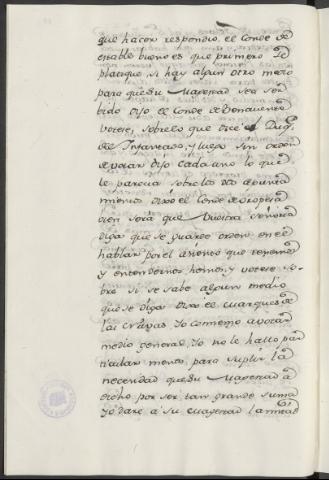 que hacer respondio el Conde de
estable bueno es que primero se
platique si hay algun otro medio
para que su Magestad sea ser
bido dijo el Conde de Benavente
votese, sobre lo que dice el Duq.
del Infantado, y luego sin orden
de votar dijo cada uno lo que
le parecia sobre lo
miento dixo el Conde de Oropesa
bien será que Vuestra Señoria
diga que se guarde orden en el
hablar por el asiento que tenemos
y entendernos hemos, y votese so-
bre si se sabe algun medio
que se diga: Dixo el Marques de
las Navas, Yo comienzo a votar
medio general, Yo no le hallo par
ticular menos, para suplir la
necesidad que su Magestad a
dicho por ser tan grande suma
yo daré a su Magestad la mitad